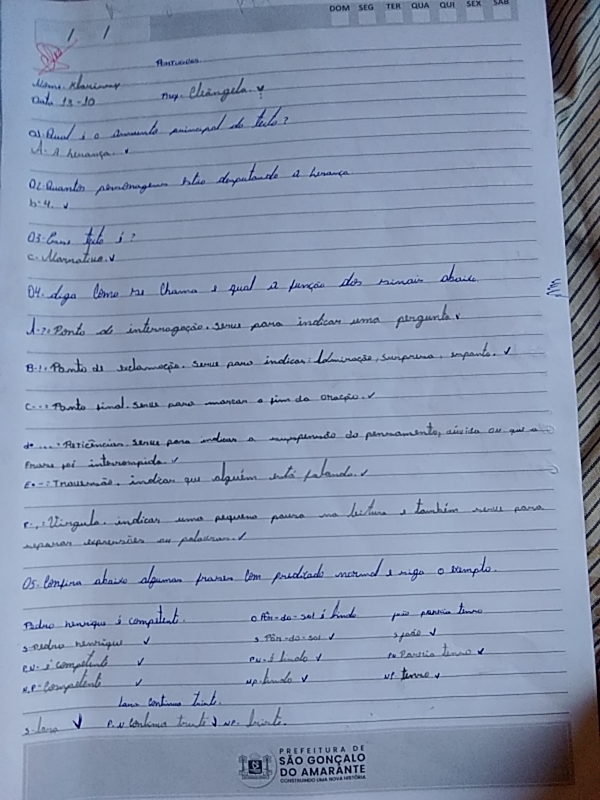 DOM SEG TER QUA QUI SEX SAB
/ /
Português
Nome:
Data 13-10 Prof. Elângela
01. Qual é o assunto principal do texto?
A- A herança.
02. Quantos personagens estão disputando a herança
b-4.
03. Esse texto é?
C- Narrativo.
04. diga como se chama e qual a função dos sinais abaixo
A-?: Ponto de interrogação. serve para indicar uma pergunta
B-!: Ponto de exclamação. serve para indicar: admiração, surpresa, espanto.
C-.: Ponto final. serve para marcar o fim da oração.
d- ...: Reticências. serve para indicar a suspensão do pensamento, dúvida ou que a
frase foi interrompida.
E- -: Travessão. indicar que alguém está falando.
F-,: Vírgula. indicar uma pequena pausa na leitura e também serve para
separar expressões ou palavras.
05. Confira abaixo algumas frases com predicado nominal e siga o exemplo.
Pedro henrique é competente. O Pôr-do-sol é lindo joão parecia tenso
S-Pedro henrique S. Pôr-do-sol S joão
P.N- é competente P.N- é lindo PN Parecia tenso
N.P- Competente NP-lindo NP tenso
Lara continua triste.
S-Lara P.N Continua triste NP- triste.
PREFEITURA DE
SÃO GONÇALO
DO AMARANTE
CONSTRUINDO UMA NOVA HISTÓRIA